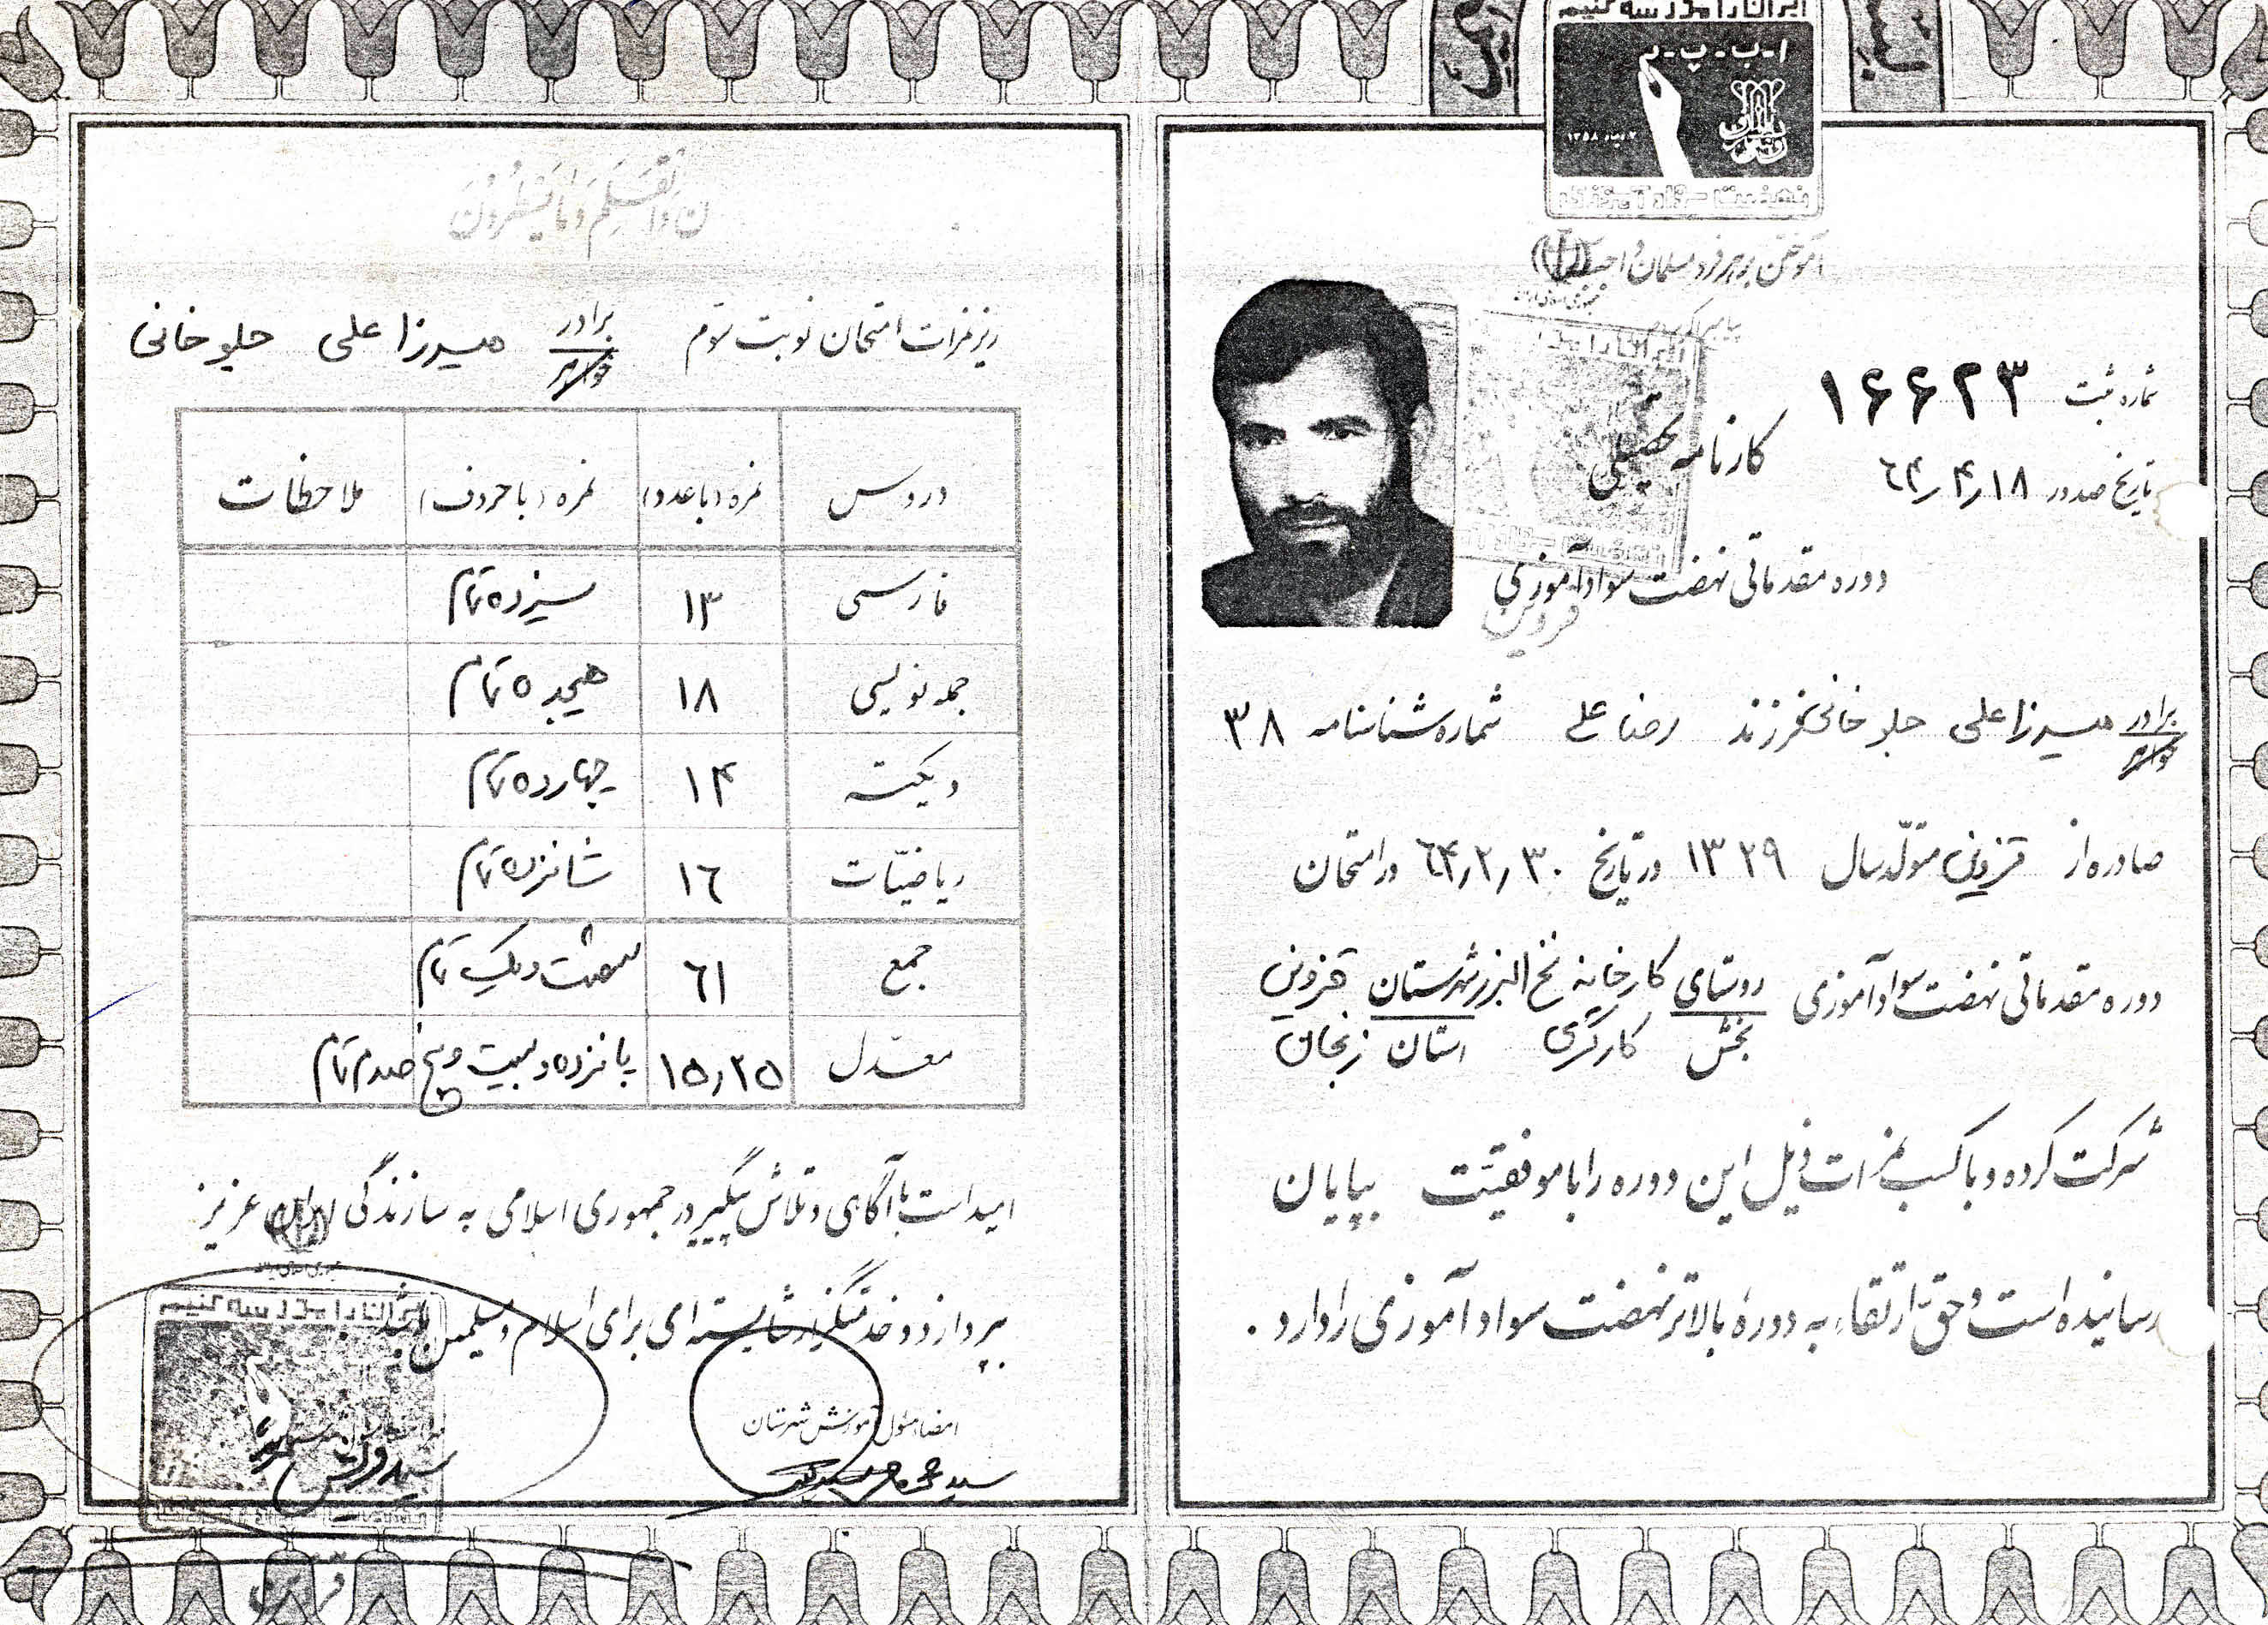 ایران را مدرسه کنیم
ا - ب - پ - د
نهضت سوادآموزی
آموختن بر هر فرد مسلمان واجب است
پیامبر اکرم
شماره ثبت ۱۶۶۲۳
تاریخ صدور ۶۴/۴/۱۸
کارنامه تحصیلی
دوره مقدماتی نهضت سوادآموزی
قزوین
برادر
خواهر
میرزاعلی جلوخانی فرزند رضاعلی شماره شناسنامه ۳۸
صادره از قزوین متولد سال ۱۳۲۹ در تاریخ ۶۴/۲/۳۰ در امتحان
دوره مقدماتی نهضت سوادآموزی روستای کارخانه نخ البرز شهرستان قزوین
بخش کارگری استان زنجان
شرکت کرده و با کسب نمرات ذیل این دوره را با موفقیّت بپایان
رسانیده است و حق ارتقاء به دورهٔ بالاتر نهضت سوادآموزی را دارد.
ن وَالْقَلَمِ وَمَا یَسْطُرُونَ
ریز نمرات امتحان نوبت سوّم برادر میرزاعلی جلوخانی
خواهر
دروس نمره (با عدد) نمره (با حروف) ملاحظات
فارسی ۱۳ سیزده تمام
جمله‌نویسی ۱۸ هیجده تمام
دیکته ۱۴ چهارده تمام
ریاضیّات ۱۶ شانزده تمام
جمع ۶۱ شصت و یک تمام
معدّل ۱۵/۲۵ پانزده و بیست و پنج صدم تمام
امید است با آگاهی و تلاش پیگیر در جمهوری اسلامی به سازندگی ایران عزیز
بپردازد و خدمتگزار شایسته‌ای برای اسلام و مسلمین باشد
جمهوری اسلامی ایران
ایران را مدرسه کنیم
امضاء مسئول آموزش شهرستان
قزوین